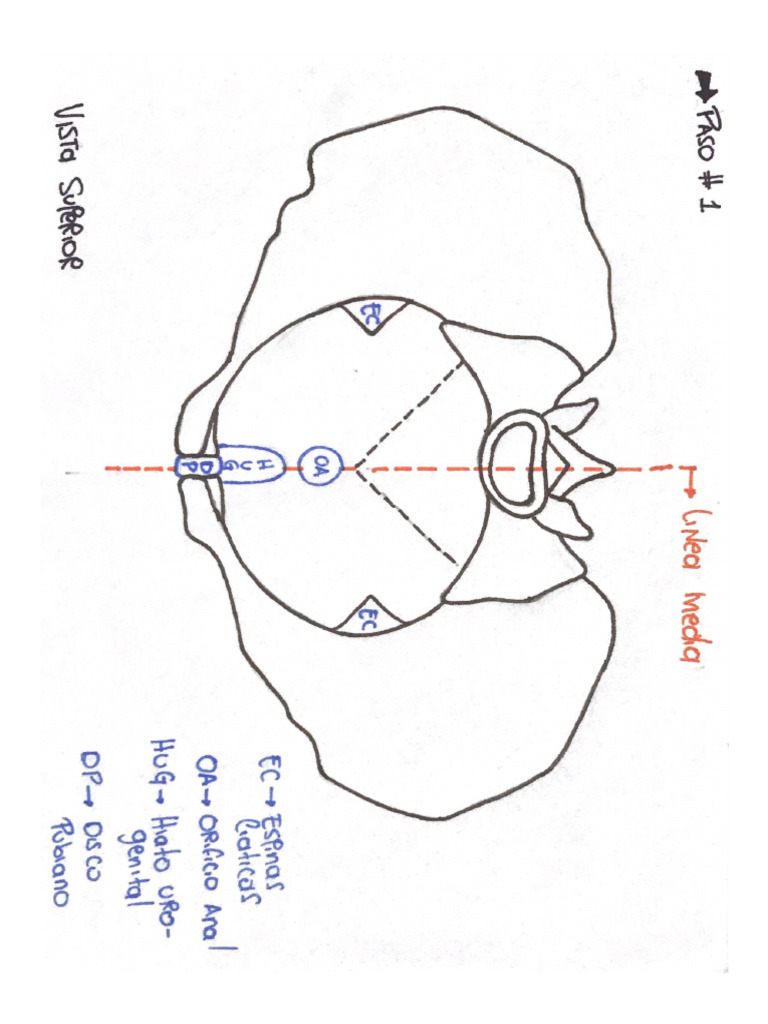 → PASO # 1
→ Línea media
EC
EC
OA
H
U
G
D
P
EC → Espinas
Ciaticas
OA → Orificio Anal
HUG → Hiato uro-
genital
DP → Disco
Pubiano
Vista Superior